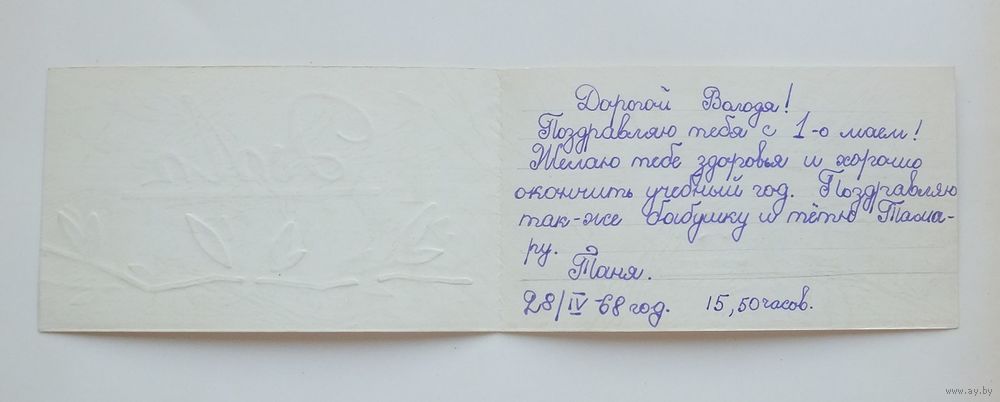 Дорогой Володя!
Поздравляю тебя с 1-о маем!
Желаю тебе здоровья и хорошо
окончить учебный год. Поздравляю
так-же бабушку и тётю Тама-
ру.
Таня.
28/IV-68 год. 15,50 часов.
www.ay.by